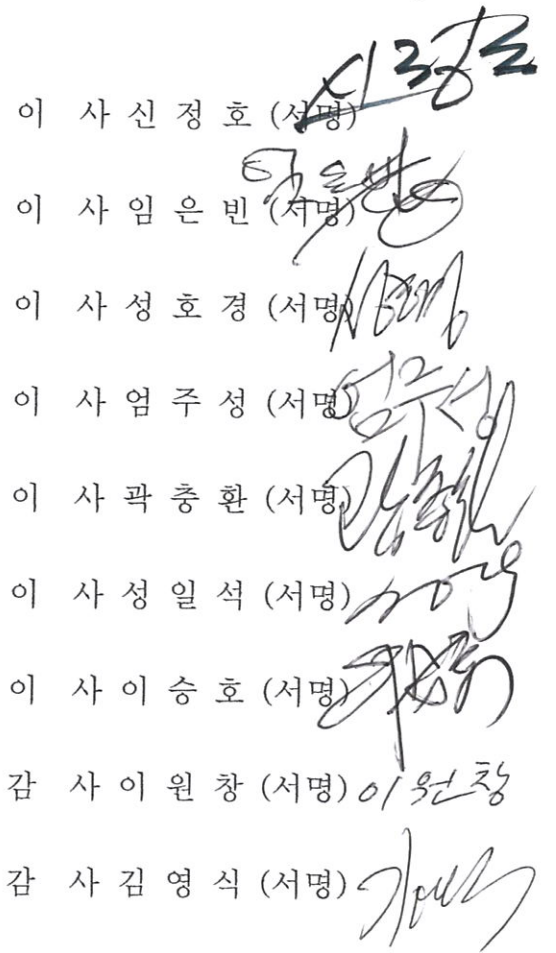 이 사 신 정 호 (서명)
이 사 임 은 빈 (서명)
이 사 성 호 경 (서명)
이 사 엄 주 성 (서명) 엄주성
이 사 곽 충 환 (서명)
이 사 성 일 석 (서명)
이 사 이 승 호 (서명)
감 사 이 원 창 (서명) 이원창
감 사 김 영 식 (서명)